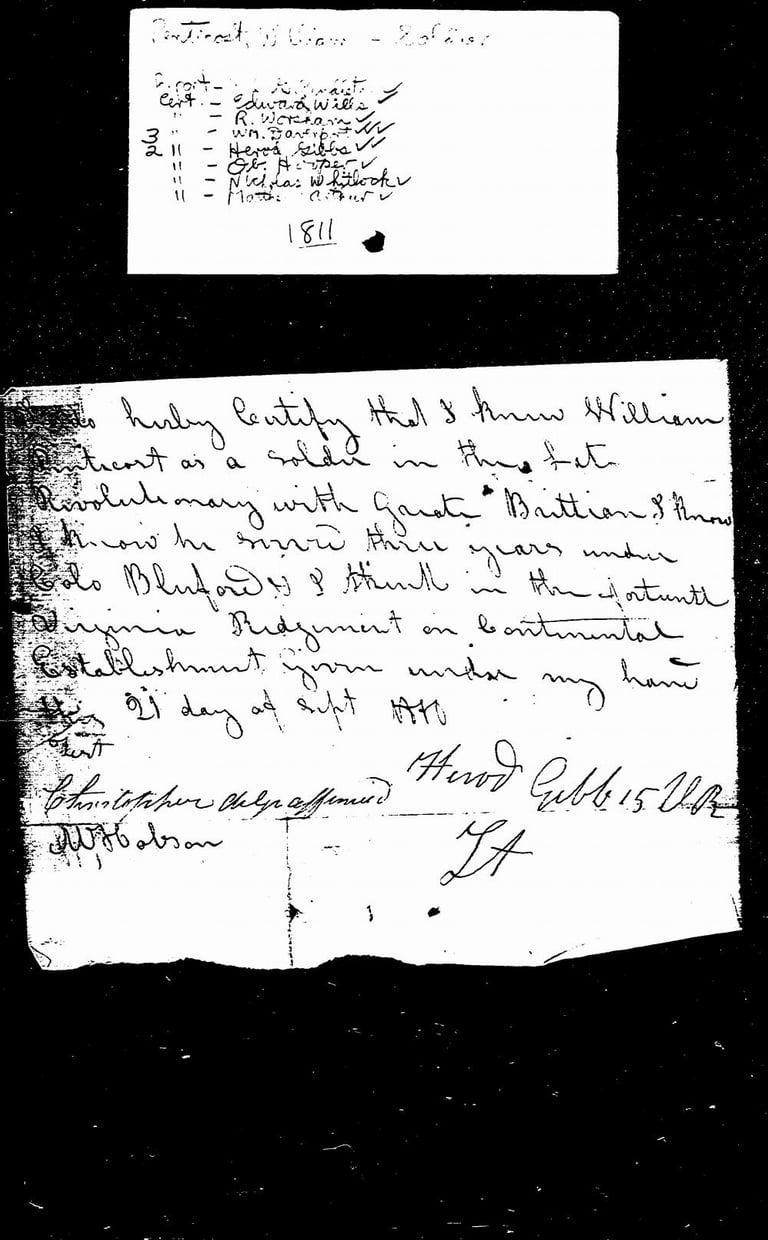 Penticost, William - Soldier
Cert. - Edward Wills ✓
" - R. Worsham ✓
" - Wm. Davenport ✓✓
3/2 " - Herod Gibbs ✓✓
" - Ob. Hooper ✓
" - Nicholas Whitlock ✓
" - Arthur ✓
1811
do hereby Certify that I knew William
Penticort as a Solder in the Late
Revolutionary with Great Brittian I know
I know he served three years under
Colo Bluford & I think in the fortunth
Virginia Ridgement on Continental
Establishment given under my hand
this 21 day of Sept 1810
Test
Christopher
Herod Gibb 15 V R
Hobson